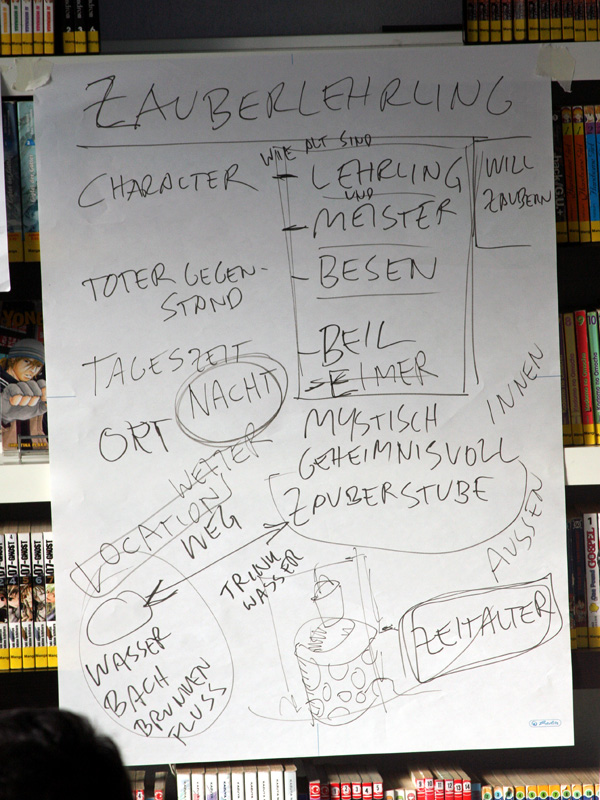 ZAUBERLEHRLING
WIE ALT SIND
CHARACTER
LEHRLING
UND
MEISTER
WILL
ZAUBERN
TOTER GEGEN-
STAND
BESEN
BEIL
EIMER
TAGESZEIT
NACHT
ORT
MYSTISCH
GEHEIMNISVOLL
ZAUBERSTUBE
INNEN
AUSSEN
WETTER
LOCATION
WEG
TRINK
WASSER
ZEITALTER
WASSER
BACH
BRUNNEN
FLUSS